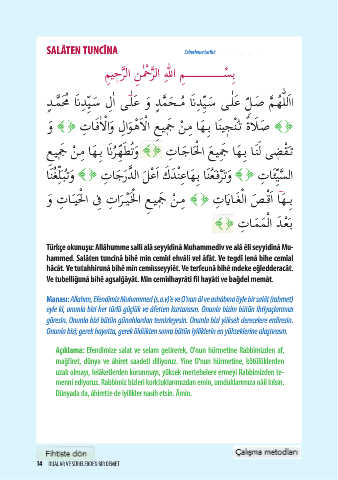 SALÂTEN TUNCÎNA
بِسْــــــــمِ اللهِ الرَّحْمٰنِ الرَّحِيمِ
اَللّٰهُمَّ صَلِّ عَلٰى سَيِّدِنَا مُحَمَّدٍ وَ عَلٰى اٰلِ سَيِّدِنَا مُحَمَّدٍ
صَلَاةً تُنْجِينَا بِهَا مِنْ جَمِيعِ الْاَهْوَالِ وَالْاٰفَاتِ وَ
تَقْضِى لَنَا بِهَا جَمِيعَ الْحَاجَاتِ وَتُطَهِّرُنَا بِهَا مِنْ جَمِيعِ
السَّيِّئَاتِ وَتَرْفَعُنَا بِهَا عِنْدَكَ اَعْلَى الدَّرَجَاتِ وَتُبَلِّغُنَا
بِهَا اَقْصَى الْغَايَاتِ مِنْ جَمِيعِ الْخَيْرَاتِ فِى الْحَيَاتِ وَ
بَعْدَ الْمَمَاتِ
Türkçe okunuşu: Allâhumme salli alâ seyyidinâ Muhammediv ve alâ êli seyyidinâ Mu-
hammed. Salâten tuncînâ bihê min cemîl ehvâli vel âfât. Ve tegdî lenê bihe cemîal
hâcât. Ve tutahhirunâ bihê min cemîsseyyiêt. Ve terfeunâ bihê indeke eğledderacât.
Ve tubelliğunâ bihê agsalğâyât. Min cemîilhayrâti fil hayâti ve bağdel memât.
Manası: Allahım, Efendimiz Muhammed (s.a.v)'e ve O'nun âl ve ashâbına öyle bir salât (rahmet)
eyle ki, onunla bizi her türlü güçlük ve âfetten kurtarasın. Onunla bizim bütün ihtiyaçlarımızı
göresin. Onunla bizi bütün günahlardan temizleyesin. Onunla bizi yüksek derecelere erdiresin.
Onunla bizi; gerek hayatta, gerek öldükten sonra bütün iyiliklerin en yükseklerine ulaştırasın.
Açıklama: Efendimize salat ve selam getirerek, O'nun hürmetine Rabbimizden af,
mağfiret, dünya ve âhiret saadeti diliyoruz. Yine O'nun hürmetine, kötülüklerden
uzak olmayı, felâketlerden korunmayı, yüksek mertebelere ermeyi Rabbimizden te-
menni ediyoruz. Rabbimiz bizleri korktuklarımızdan emin, umduklarımıza nâil kılsın.
Dünyada da, âhirette de iyilikler nasib etsin. Âmin.
Fihtiste dön
Çalışma metodları
14